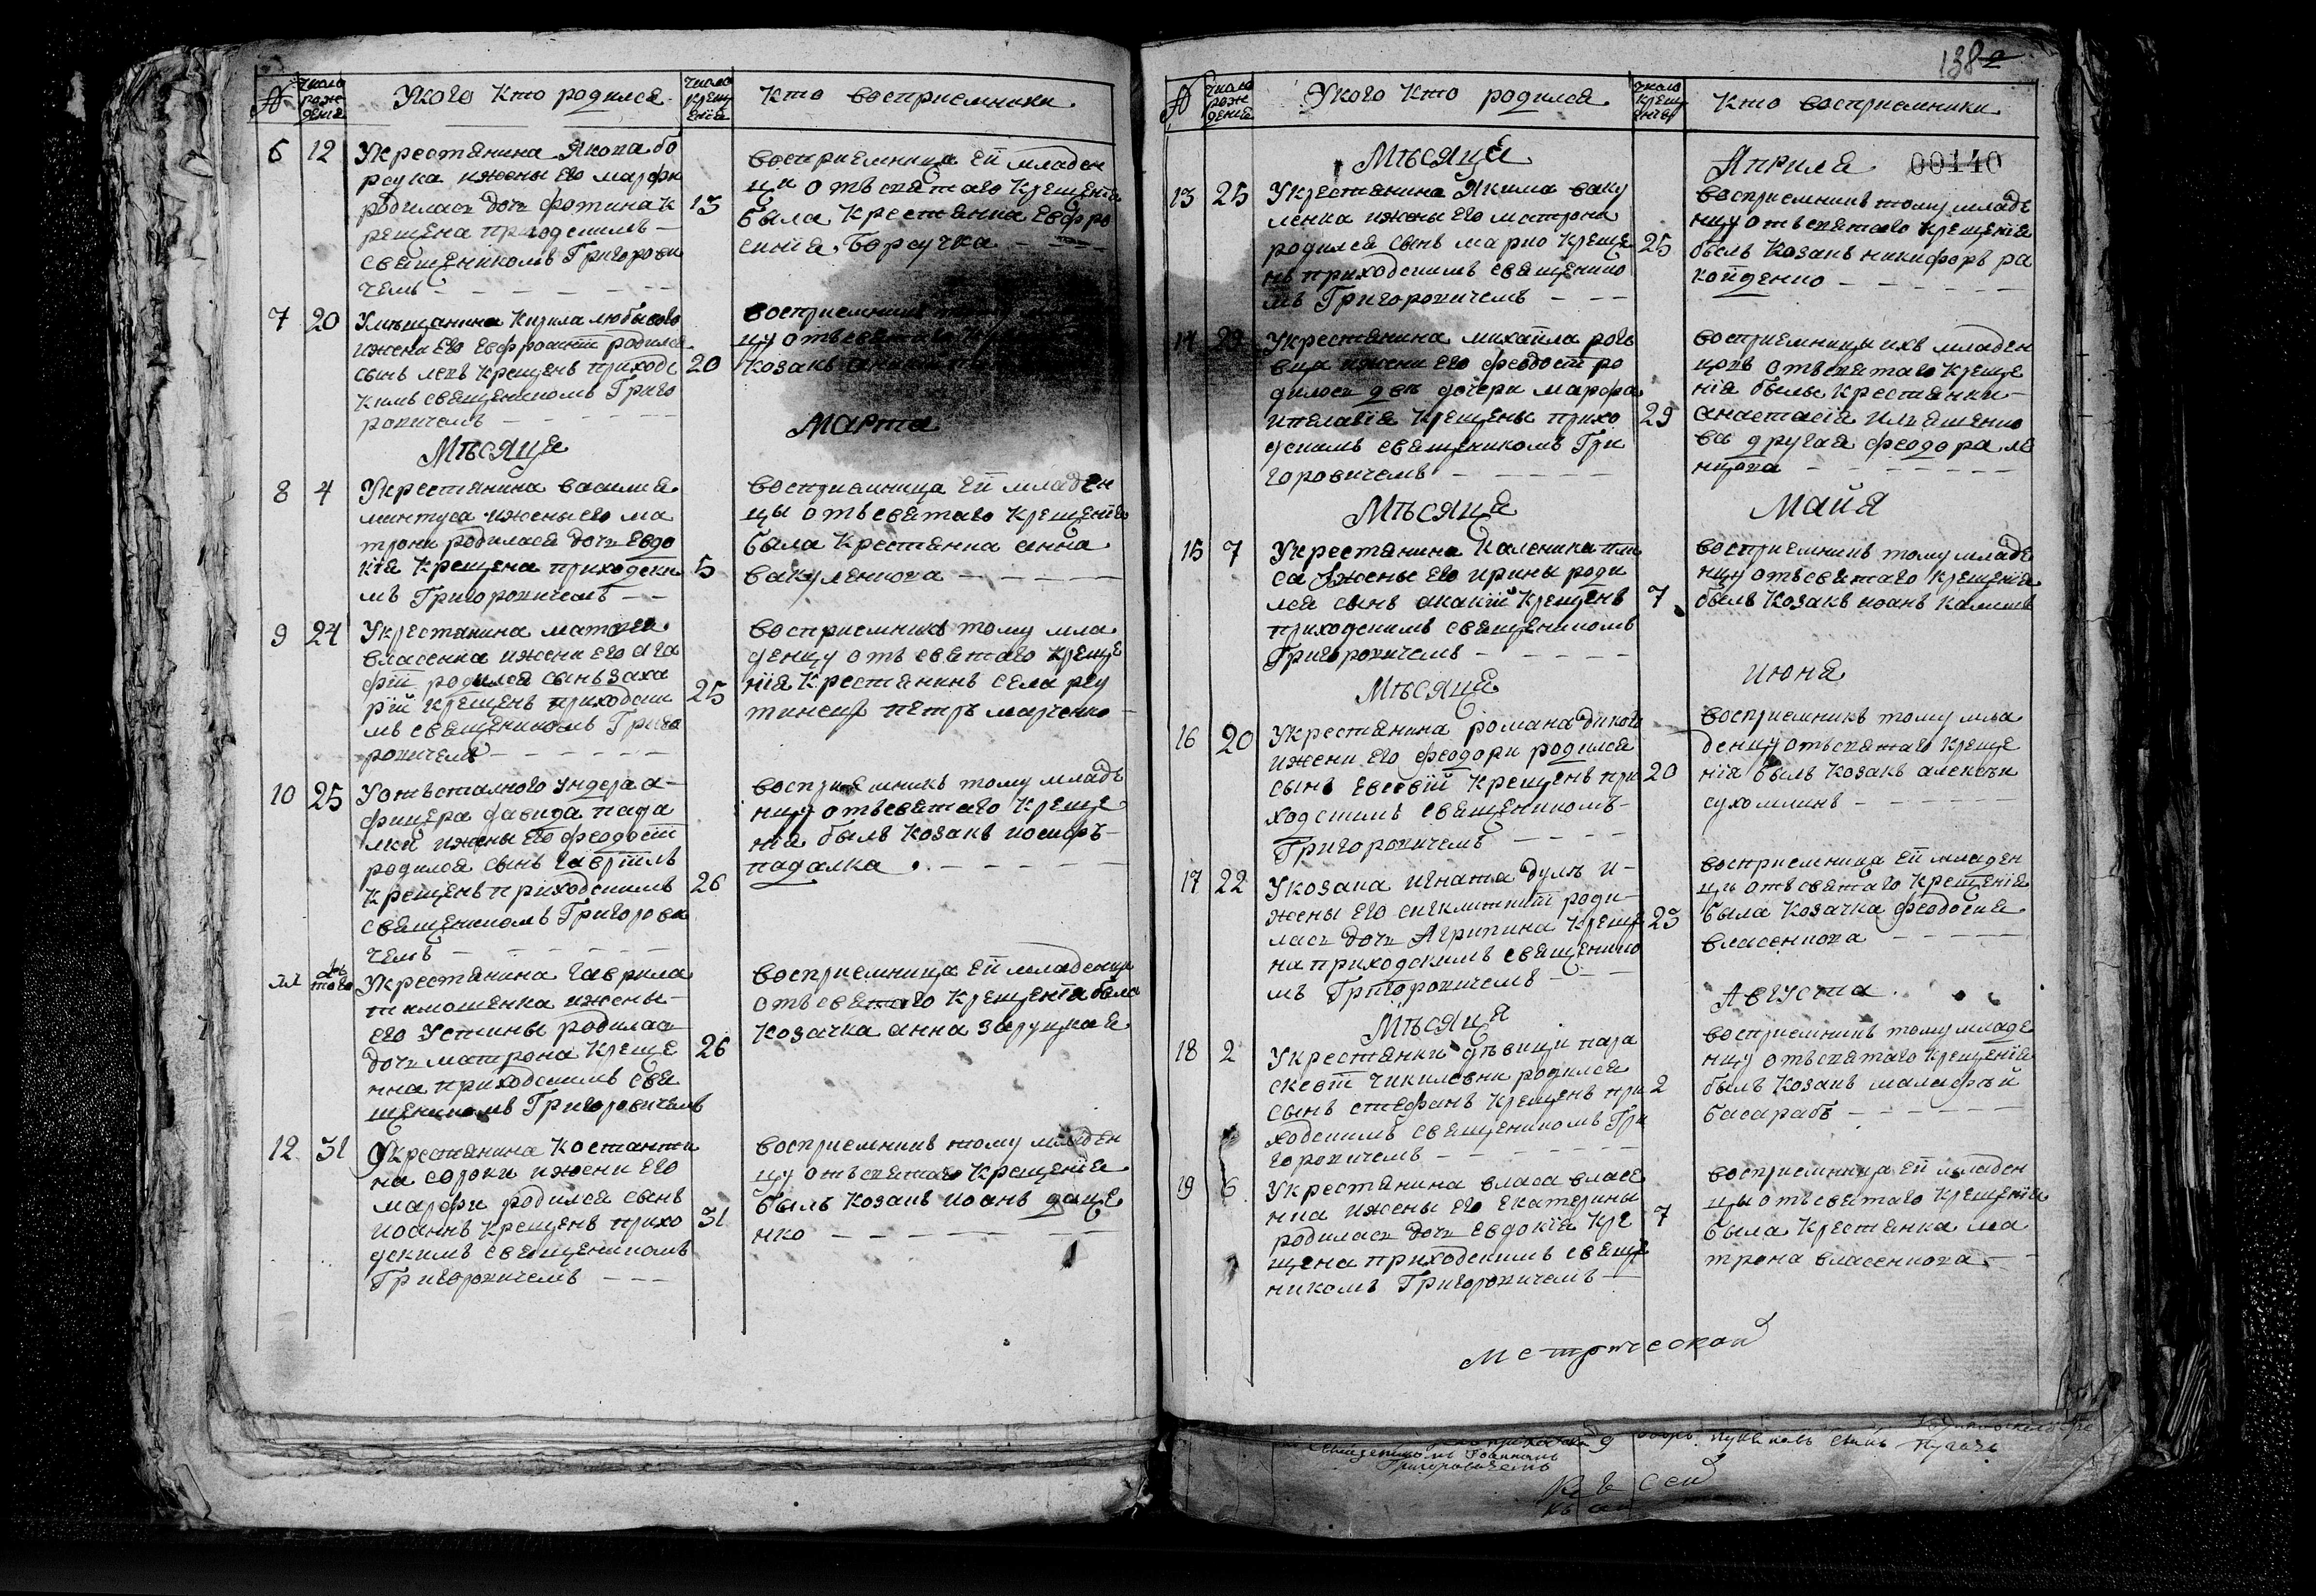 №
число рож дения
У кого кто родился
число крещ ения
кто восприемники
6 12 У крестянина Якова бо
рсука и жены его марфи
родилась дочь фотина к 13
рещена приодскимъ –
священикомъ Григорови
чемъ
восприемница ей младен
ци отъ святаго крещения
была крестянка Евфро
синїя Борсучка
7 20 У мещанина Кирила любивого
и жени его Евфросинїи родился
сынъ левъ крещенъ приходс 20
кимъ священикомъ Григо
ровичемъ
восприемникъ
цу отъ святаго
козакъ
Мѣсяца марта
8 4 У крестянина василия
минтуса и жены его ма
трони родилася дочь Евдо
кїя крещена приходски 5
мъ Григоровичемъ
восприемница ей младен
цы отъ святаго крещенїя
была крестянка анна
вакуленкова
9 24 У крестянина матвея
власенка и жени его ага
фїи родился сынъ заха
рїй крещенъ приходски 25
мъ священикомъ Григо
ровичемъ
восприемникъ тому мла
денцу отъ святаго креще
нїя крестянинъ села реу
тинець петръ марченко
10 25 У отъставного ундера о-
фицера давида пада
лки и жены его феодосїи
родился сынъ гаврїилъ
крещенъ приходскимъ 26
священикомъ Григорови
чемъ
восприемникъ тому младе
нцу отъ святаго креще
нїя былъ козакъ иосифъ
падалка
11 У крестянина гаврила
тимошенка и жены
его Устины родилась
дочь матрона креще 26
нна приходскимъ свя
щеникомъ Григоровичемъ
восприемница ей младенци
отъ святаго крещенїя была
козачка анна заруцкая
12 31 У крестянина костанти
на сороки и жени его
марфи родился сынъ
иоаннъ крещенъ прихо 31
дскимъ священикомъ
Григоровичемъ
восприемникъ тому младен
цу отъ святаго крещенїя
былъ козакъ иоанъ даце
нко
138
00140
№
число рож дения
У кого кто родился
число крещ ения
кто восприемники
Мѣсяца Априля
13 25 У крестянина Якима ваку
ленка и жены его матрони
родился сынъ марко креще 25
нъ приходскимъ священико
мъ Григоровичемъ
восприемникъ тому младе
нцу отъ святаго крещенїя
былъ козакъ никифоръ ра
койденко
14 29 У крестянина михайла рого
вця и жени его феодосїи ро
дилось двѣ дочери марфа
и пелагїя крещены прихо 29
дскимъ священикомъ Гри
горовичемъ
восприемницы ихъ младен
цовъ отъ святаго креще
нїя были крестянки
анастасїя Ильяшенко
ва другая феодора ле
нцова
Мѣсяца Майя
15 7 У крестянина Каленика пли
са и жены его ирины роди
лся сынъ акакїй крещенъ 7
приходскимъ священикомъ
Григоровичемъ
восприемникъ тому младе
нцу отъ святаго крещенїя
былъ козакъ иоанъ калишъ
Мѣсяца июня
16 20 У крестянина романа дикого
и жени его феодори родился
сынъ Евсевїй крещенъ при 20
ходскимъ священикомъ
Григоровичемъ
восприемникъ тому мла
денцу отъ святаго креще
нїя былъ козакъ алексѣи
сухомлинъ
17 22 У козака игната дулѣ и
жены его роди
лась дочь Агрипина креще 23
на приходскимъ священико
мъ Григоровичемъ
восприемница ей младен
цы отъ святаго крещенїя
была козачка феодосия
власенкова
Мѣсяця Августа
18 2 У крестянки дѣвици пара
скевїи чикилевни родился
сынъ стефанъ крещенъ при 2
ходскимъ священикомъ Гри
горовичемъ
восприемникъ тому младе
нцу отъ святаго крещенїя
былъ козакъ малафѣй
басарабъ
19 6 У крестянина власа власе
нка и жены его Екатерины
родилась дочь Евдокїя кре 7
щена приходскимъ свяще
никомъ Григоровичемъ
восприемница ей младен
цы отъ святаго крещенїя
была крестянка ма
трона власенкова
Метрической
священикомъ Иоанномъ
Григоровичемъ